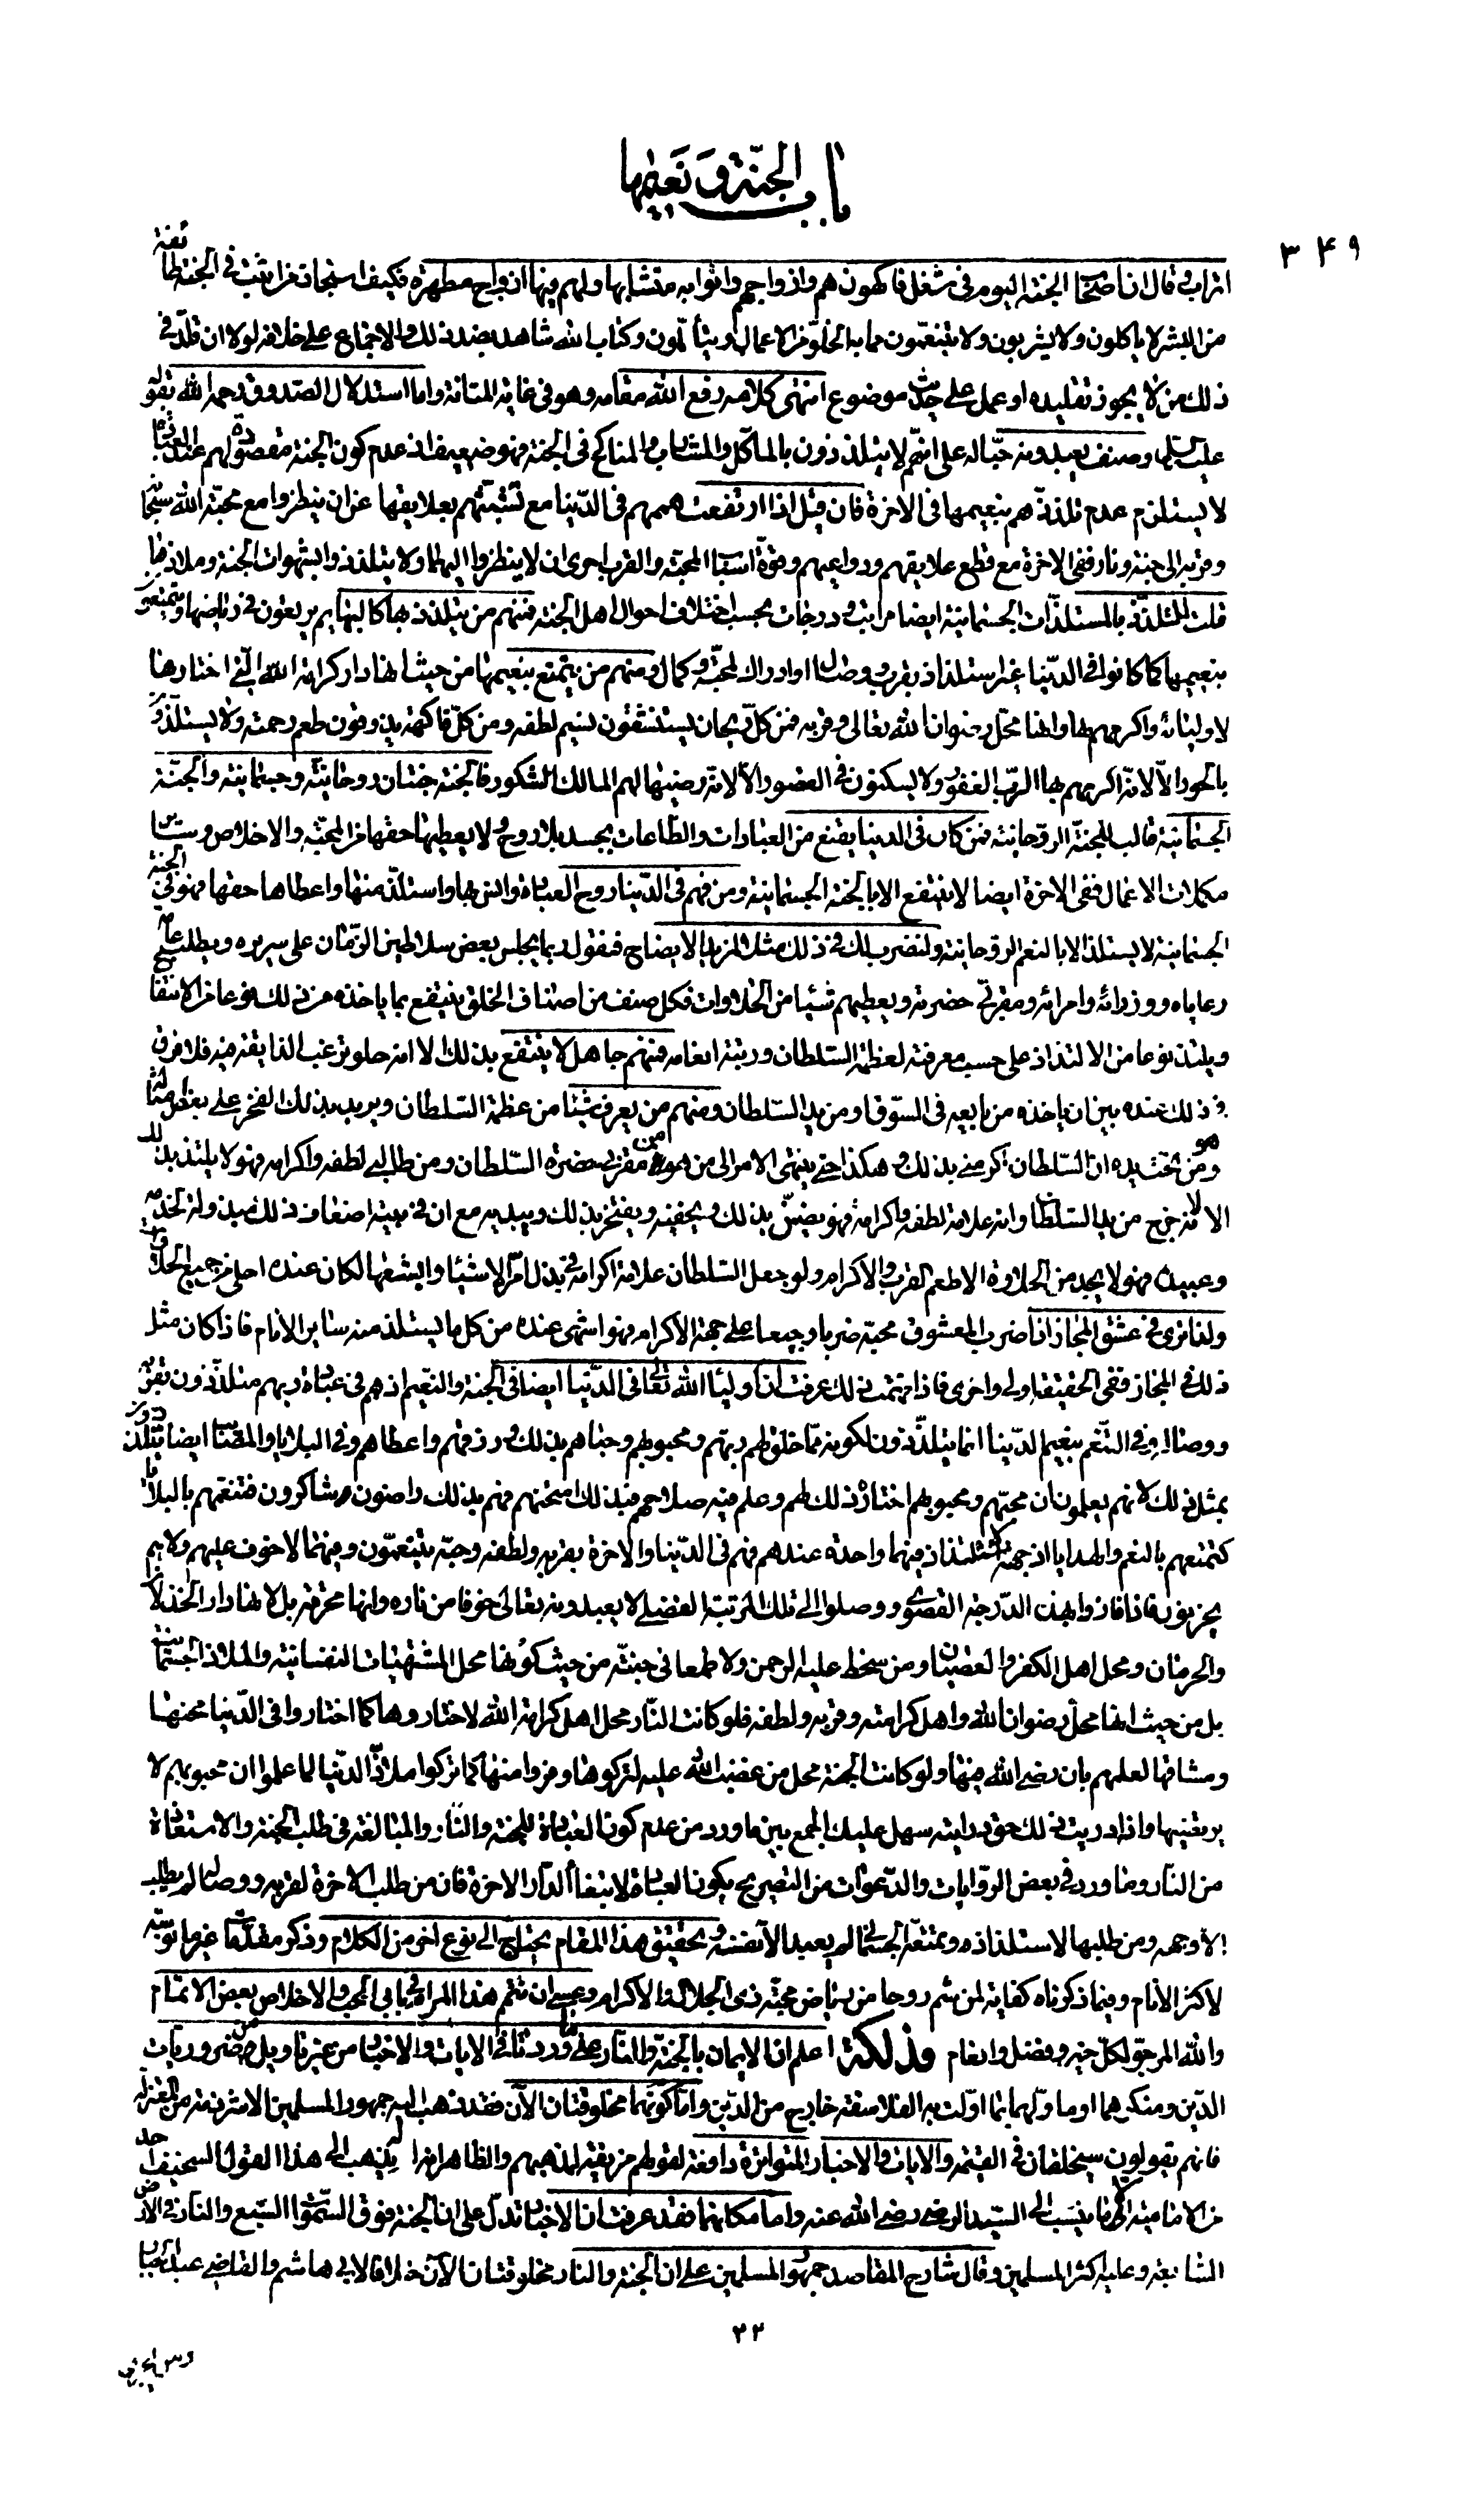 باب الجنة و نعيمها
٣٤٩
اتراب وقال ان اصحاب الجنة اليوم في شغل فاكهون هم وازواجهم واتوا به متشابها ولهم فيها ازواج مطهرة فكيف استجاز من اثبت في الجنة طائفة
من البشر لا ياكلون ولا يشربون ولا يتنعمون مما به الخلق من الاعمال ويتألمون وكتاب الله شاهد بضد ذلك والاجماع على خلافه لولا ان قلد في
ذلك من لا يجوز تقليده او عمل على حديث موضوع انتهى كلامه رفع الله مقامه وهو في غاية المتانة واما استدلال الصدوق رحمه الله بقوله
عليه السلام وصنف يعبدونه حبا له على انهم لا يتلذذون بالمآكل والمشارب والمناكح في الجنة فهو ضعيف اذ عدم كون الجنة مقصودة لهم عند العبادة
لا يستلزم عدم تلذذهم بنعيمها في الاخرة فان قيل اذا ارتفعت هممهم في الدنيا مع تشبثهم بعلايقها عن ان ينظروا مع محبة الله سبحانه
وقربه الى جنة ونار ففي الاخرة مع قطع علايقهم ودواعيهم وقوة اسباب المحبة والقرب احرى ان لا ينظروا اليهما ولا يتلذذوا بشهوات الجنة وملاذها
قلت للتلذذ بالمستلذات الجسمانية ايضا مراتب ودرجات بحسب اختلاف احوال اهل الجنة فمنهم من يتلذذ بها كالبهايم يرتعون في رياضها ويتمتعون
بنعيمها كما كانوا في الدنيا من غير استلذاذ بقرب ووصال او ادراك لمحبة وكمال ومنهم من يتمتع بنعيمها من حيث انها دار كرامة الله التي اختارها
لاوليائه واكرمهم بها وانها محل رضوان الله تعالى وقربه فمن كل ريحان يستنشقون نسيم لطفه ومن كل فاكهة يذوقون طعم رحمته ولا يستلذون
بالحور الا لانه اكرمهم بها الرب الغفور ولا يسكنون في القصور الا لانه رضيها لهم المالك الشكور فالجنة جنتان روحانية وجسمانية والجنة
الجسمانية قالب للجنة الروحانية فمن كان في الدنيا يقنع من العبادات والطاعات بجسد بلا روح ولا يعطيها حقها من المحبة والاخلاص وساير
مكملات الاعمال ففي الاخرة ايضا لا ينتفع الا بالجنة الجسمانية ومن فهم في الدنيا روح العبادة وانس بها واستلذ منها واعطاها حقها فهو في الجنة
الجسمانية لا يستلذ الا بالنعم الروحانية ولنضرب لك في ذلك مثلا لمزيد الايضاح فنقول ربما يجلس بعض سلاطين الزمان على سريره ويطلب عامة
رعاياه ووزرائه وامرائه ومقربي حضرته ويعطيهم شيئا من الحلاوات فكل صنف من اصناف الخلق ينتفع بما ياخذه من ذلك نوعا من الانتفاع
ويلتذ نوعا من الالتذاذ على حسب معرفته لعظمة السلطان ورتبة انعامه فمنهم جاهل لا ينتفع بذلك الا انه حلو ترغب الذايقة فيه فلا فرق
في ذلك عنده بين ان ياخذه من بايعه في السوق او من يد السلطان ومنهم من يعرف شيئا من عظمة السلطان ويريد بذلك الفخر على بعض امثاله
ومن هو تحت يده ان السلطان اكرمني بذلك وهكذا حتى ينتهي الامر الى من هو من مقربي حضرة السلطان ومن طالبي لطفه واكرامه فهو لا يلتذ بذلك
الا لانه خرج من يد السلطان وانه علامة لطفه واكرامه فهو يضن بذلك ويخفيه ويفتخر بذلك ويبديه مع ان في بيته اضعاف ذلك مبذولة لخدمه
وعبيده فهو لا يجد من الحلاوة الا طعم القرب والاكرام ولو جعل السلطان علامة اكرامه في بذل امر الاشياء وابشعها لكان عنده احلى من جميع الحلاوات
ولذا ترى في عشق المجاز اذا ضرب المعشوق محبه ضربا وجيعا على جهة الاكرام فهو اشهى عنده من كل ما يستلذ منه ساير الانام فاذا كان مثل
ذلك في المجاز ففي الحقيقة اولى واحرى فاذا فهمت ذلك عرفت ان اولياء الله تعالى في الدنيا ايضا في الجنة والنعيم اذ هم في عبادة ربهم متلذذون بقربه
ووصاله وفي التنعم بنعيم الدنيا انما يتلذذون لكونه مما خلق لهم ربهم ومحبوبهم وحباهم بذلك ورزقهم واعطاهم وفي البلايا والمصائب ايضا يتلذذون
بمثل ذلك لانهم يعلمون ان محبهم ومحبوبهم اختار ذلك لهم وعلم فيه صلاحهم فبذلك امتحنهم فهم بذلك راضون شاكرون فتنعمهم بالبلايا
كتمتعهم بالنعم والهدايا اذ جهة الاستلذاذ فيهما واحدة عندهم فهم في الدنيا والاخرة بقربه ولطفه وحبه يتنعمون وفيهما لا خوف عليهم ولا هم
يحزنون فاذا فازوا بهذه الدرجة القصوى ووصلوا الى تلك المرتبة الفضلى لا يعبدونه تعالى خوفا من ناره وانها محرقة بل لانها دار الخذلان
والحرمان ومحل اهل الكفر والعصيان ومن سخط عليه الرحمن ولا طمعا في جنته من حيث كونها محل المشتهيات النفسانية والملاذ الجسمانية
بل من حيث انها محل رضوان الله واهل كرامته وقربه ولطفه فلو كانت النار محل اهل كرامة الله لاختاروها كما اختاروا في الدنيا محنها
ومشاقها لعلمهم بان رضى الله فيها ولو كانت الجنة محل من غضب الله عليه لتركوها وفروا منها كما تركوا ملاذ الدنيا لما علموا ان محبوبهم لا
يرتضيها واذا دريت ذلك حق درايته سهل عليك الجمع بين ما ورد من عدم كون العبادة للجنة والنار والمبالغة في طلب الجنة والاستعاذة
من النار وما ورد في بعض الروايات والدعوات من التصريح بكون العبادة لابتغاء الدار الاخرة فان من طلب الاخرة لقربه ووصاله لم يطلب
الا وجهه ومن طلبها لاستلذاذه وتمتعه الجسماني لم يعبد الا نفسه وتحقيق هذا المقام يحتاج الى نوع اخر من الكلام وذكر مقدمات غير مانوسة
لاكثر الانام وفيما ذكرناه كفاية لمن شم روحا من رياض محبة ذي الجلال والاكرام وعسى ان نتمم هذا المرام في بابي الحب والاخلاص بعض الاتمام
والله المرجو لكل خير وفضل وانعام فذلكة اعلم ان الايمان بالجنة والنار على ما وردتا في الايات والاخبار من غير تاويل من ضروريات
الدين ومنكرهما او مأولهما بما اولت به الفلاسفة خارج من الدين واما كونهما مخلوقتان الان فقد ذهب اليه جمهور المسلمين الا شرذمة من المعتزلة
فانهم يقولون سيخلقان في القيمة والايات والاخبار المتواترة دافعة لقولهم مزيفة لمذهبهم والظاهر انه لم يذهب الى هذا القول السخيف احد
من الامامية الا ما ينسب الى السيد الرضي رضى الله عنه واما مكانهما فقد عرفت ان الاخبار تدل على ان الجنة فوق السموات السبع والنار في الارض
السابعة وعليه اكثر المسلمين وقال شارح المقاصد جمهور المسلمين على ان الجنة والنار مخلوقتان الان خلافا لابي هاشم والقاضي عبد الجبار
٢٢